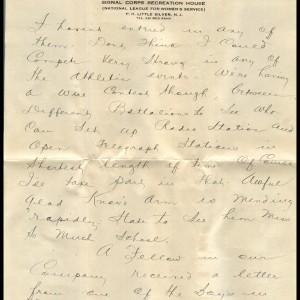 SIGNAL CORPS RECREATION HOUSE
(NATIONAL LEAGUE FOR WOMEN'S SERVICE)
P. O. LITTLE SILVER, N. J.
TEL. RED BANK
I havent entered in any of
them. Dont think I could
Compete very strong in any of
the athletic events. Were having
a wire contest though between
Different Battalions to See Who
Can Set up Radio Station And
Open Telegraph Stations in
Shortest length of time. Of Course
I'le take part in that. Awful
glad Knox's Arm is Mending
rapidly. Hate to See him Miss
So Much School.
A Fellow in our
Company received a letter
from one of the boys in